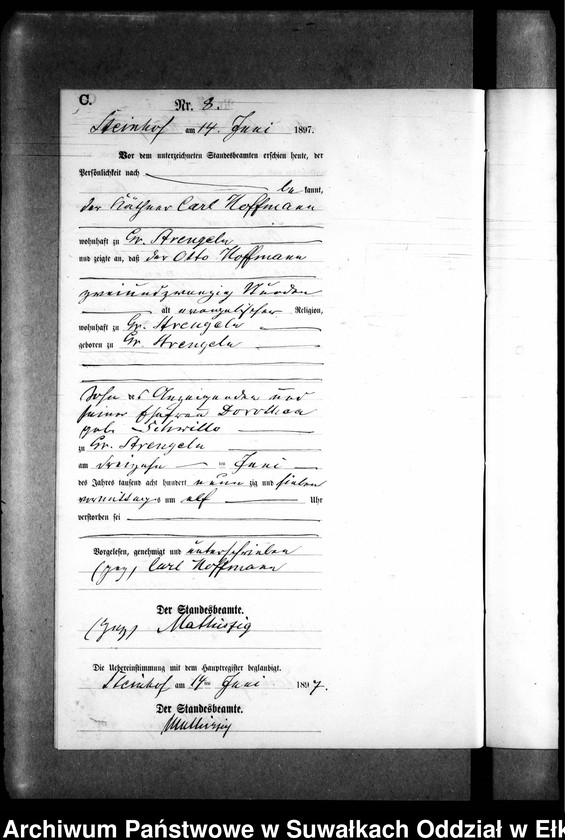 C.
Nr. 8.
Steinhof am 14 Juni 1897.
Vor dem unterzeichneten Standesbeamten erschien heute, der
Persönlichkeit nach
be kannt,
der Käthner Carl Hoffmann
wohnhaft zu Gr. Strengeln
und zeigte an, daß der Otto Hoffmann
zweiundzwanzig Stunden
alt evangelischer Religion,
wohnhaft zu Gr. Strengeln
geboren zu Gr. Strengeln
Sohn des Anzeigenden und
seiner Ehefrau Dorothea
geb. Schwillo
zu Gr. Strengeln
am dreizehn ten Juni
des Jahres tausend acht hundert neun zig und sieben
vormittags um elf Uhr
verstorben sei
Vorgelesen, genehmigt und unterschrieben
(gez) Carl Hoffmann
Der Standesbeamte.
(gez)
Die Uebereinstimmung mit dem Hauptregister beglaubigt.
Steinhof am 14ten Juni 1897.
Der Standesbeamte.
Archiwum Państwowe w Suwałkach Oddział w Ełk